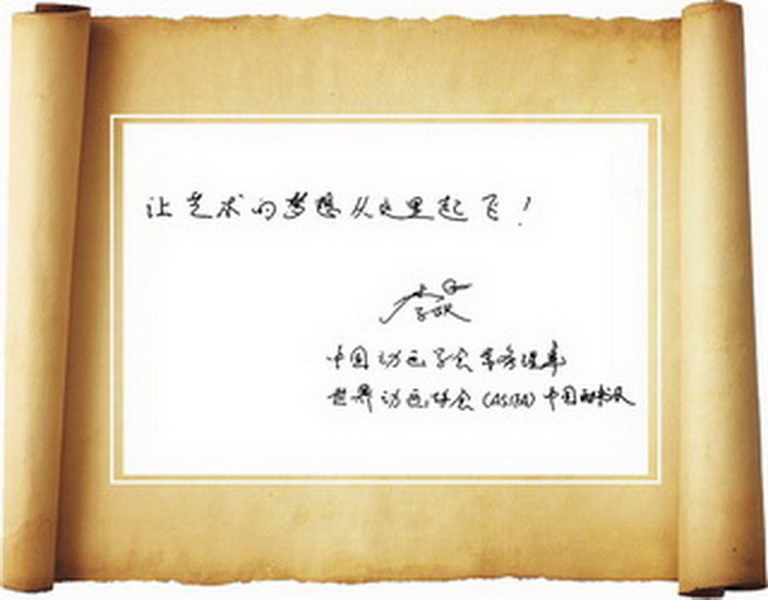 让艺术的梦想从这里起飞！
中国动画学会常务理事
世界动画协会(ASIFA)中国